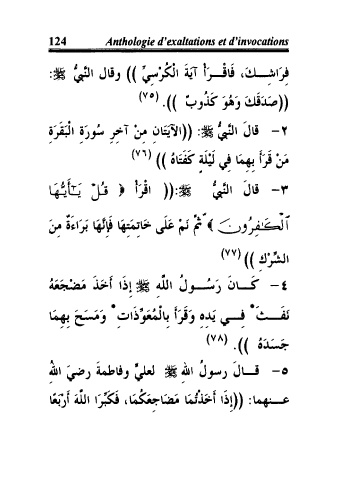 124 Anthologie d'exaltations et d'invocations
فِرَاشِـكَ، فَاقْـرَأْ آيَةَ الْكُرْسِيِّ )) وقال النَّبِيُّ ﷺ:
((صَدَقَكَ وَهُوَ كَذُوبٌ )). (٧٥)
٢- قالَ النَّبِيُّ ﷺ: ((الآيَتَانِ مِنْ آخِرِ سُورَةِ الْبَقَرَةِ
مَنْ قَرَأَ بِهِمَا فِي لَيْلَةٍ كَفَتَاهُ )) (٧٦)
٣- قالَ النَّبِيُّ ﷺ:(( اقْرَأْ ﴿ قُلْ يَٰٓأَيُّهَا
ٱلْكَٰفِرُونَ ﴾ ثُمَّ نَمْ عَلَى خَاتِمَتِهَا فَإِنَّهَا بَرَاءَةٌ مِنَ
الشِّرْكِ )) (٧٧)
٤- كَـانَ رَسُـولُ اللهِ ﷺ إِذَا أَخَذَ مَضْجَعَهُ
نَفَـثَ فِـي يَدِهِ وَقَرَأَ بِالْمُعَوِّذَاتِ وَمَسَحَ بِهِمَا
جَسَدَهُ )). (٧٨)
٥- قـالَ رسولُ اللهِ ﷺ لعليٍّ وفاطمةَ رضيَ اللهُ
عـنهما: ((إِذَا أَخَذْتُمَا مَضَاجِعَكُمَا، فَكَبِّرَا اللهَ أَرْبَعًا